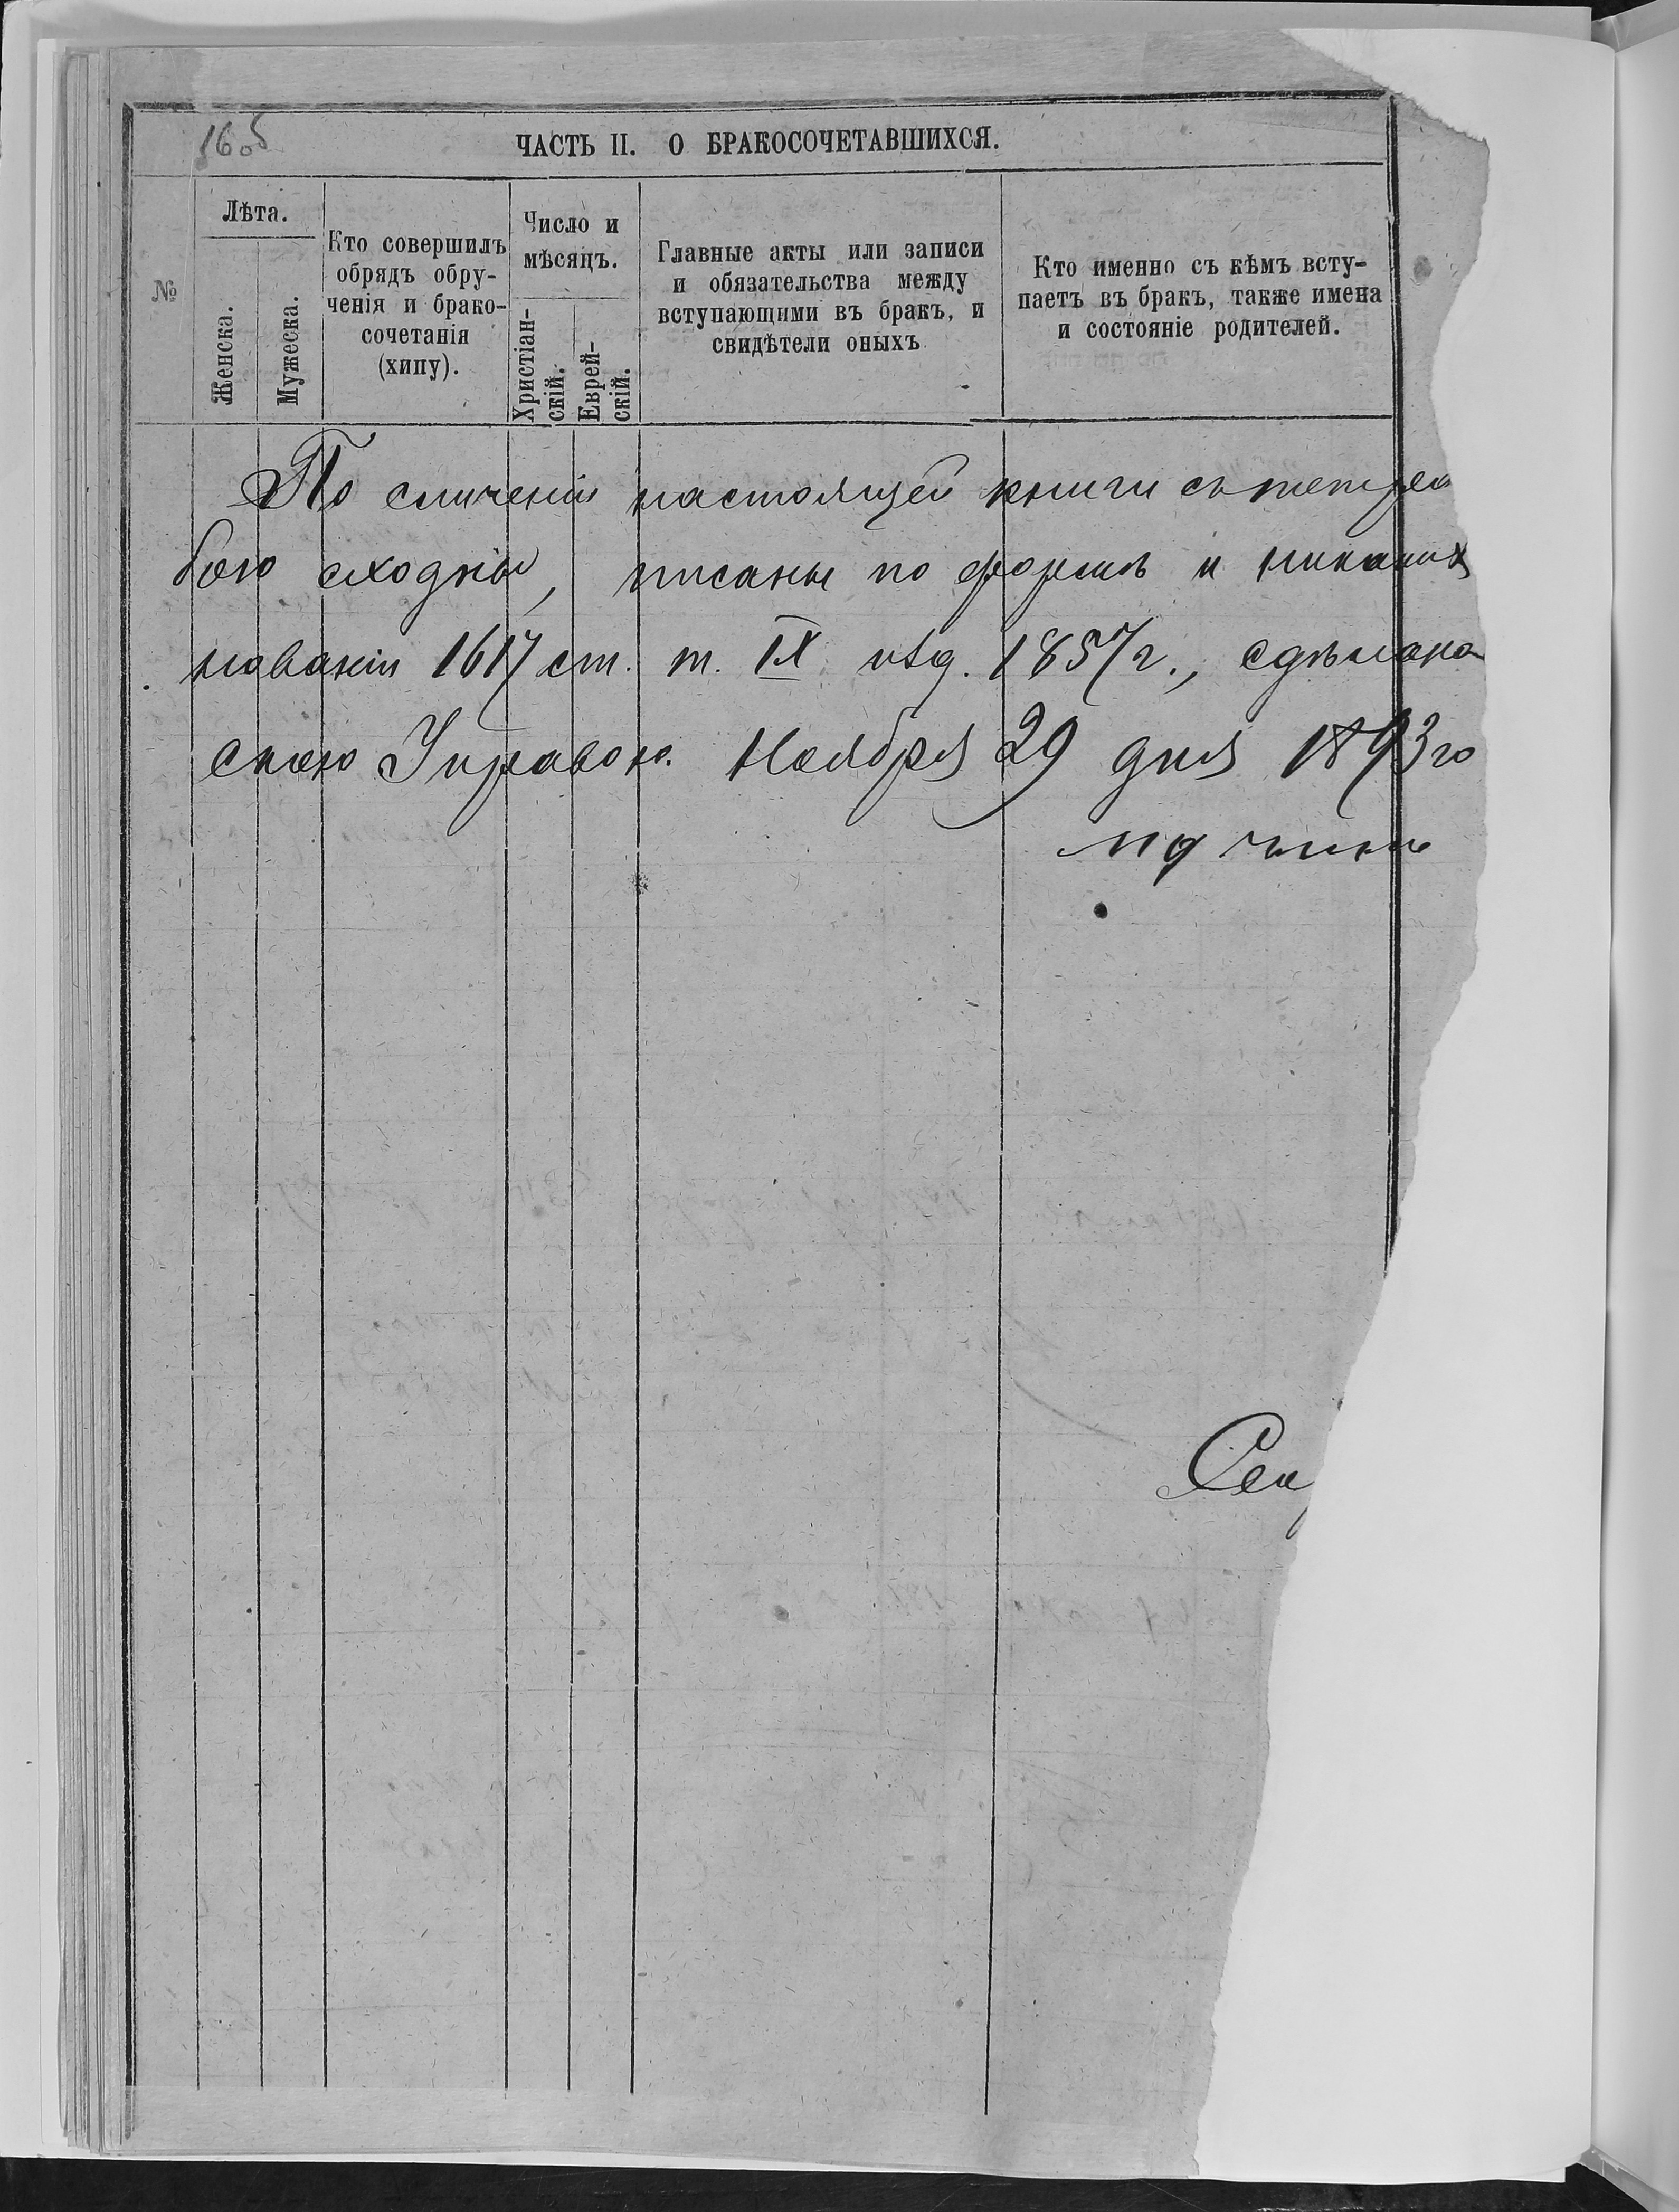 1605
ЧАСТЬ II. О БРАКОСОЧЕТАВШИХСЯ.
№
Лѣта.
Женска.
Мужеска.
Кто совершилъ
обрядъ обру-
ченія и брако-
сочетанія
(хипу).
Число и
мѣсяцъ.
Христіан-
скій.
Еврей-
скій.
Главные акты или записи
и обязательства между
вступающими въ бракъ, и
свидѣтели оныхъ
Кто именно съ кѣмъ всту-
паетъ въ бракъ, также имена
и состояніе родителей.
По сличеніи настоящей книги съ
бою сходны, писаны по формѣ и никаких
нованіи 1617 ст. т. IX изд. 1857 г., сдѣлана
скою Управою. Ноября 29 дня 1893 го
Сек